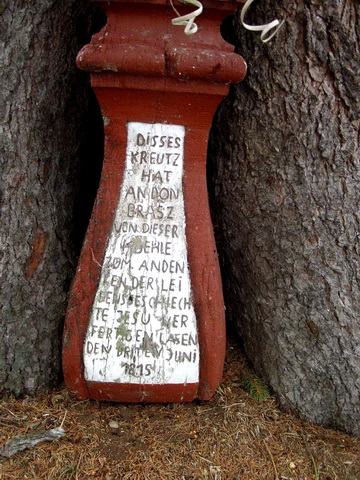 DISSES
KREUTZ
HAT
AN DON
GRASZ
VON DIESER
BEHLE
ZUM ANDEN
KEN DER LEI
DENSGESCHIECH
TE JESU VER
FERTIGEN LASEN
DEN DRITEN JUNI
1815